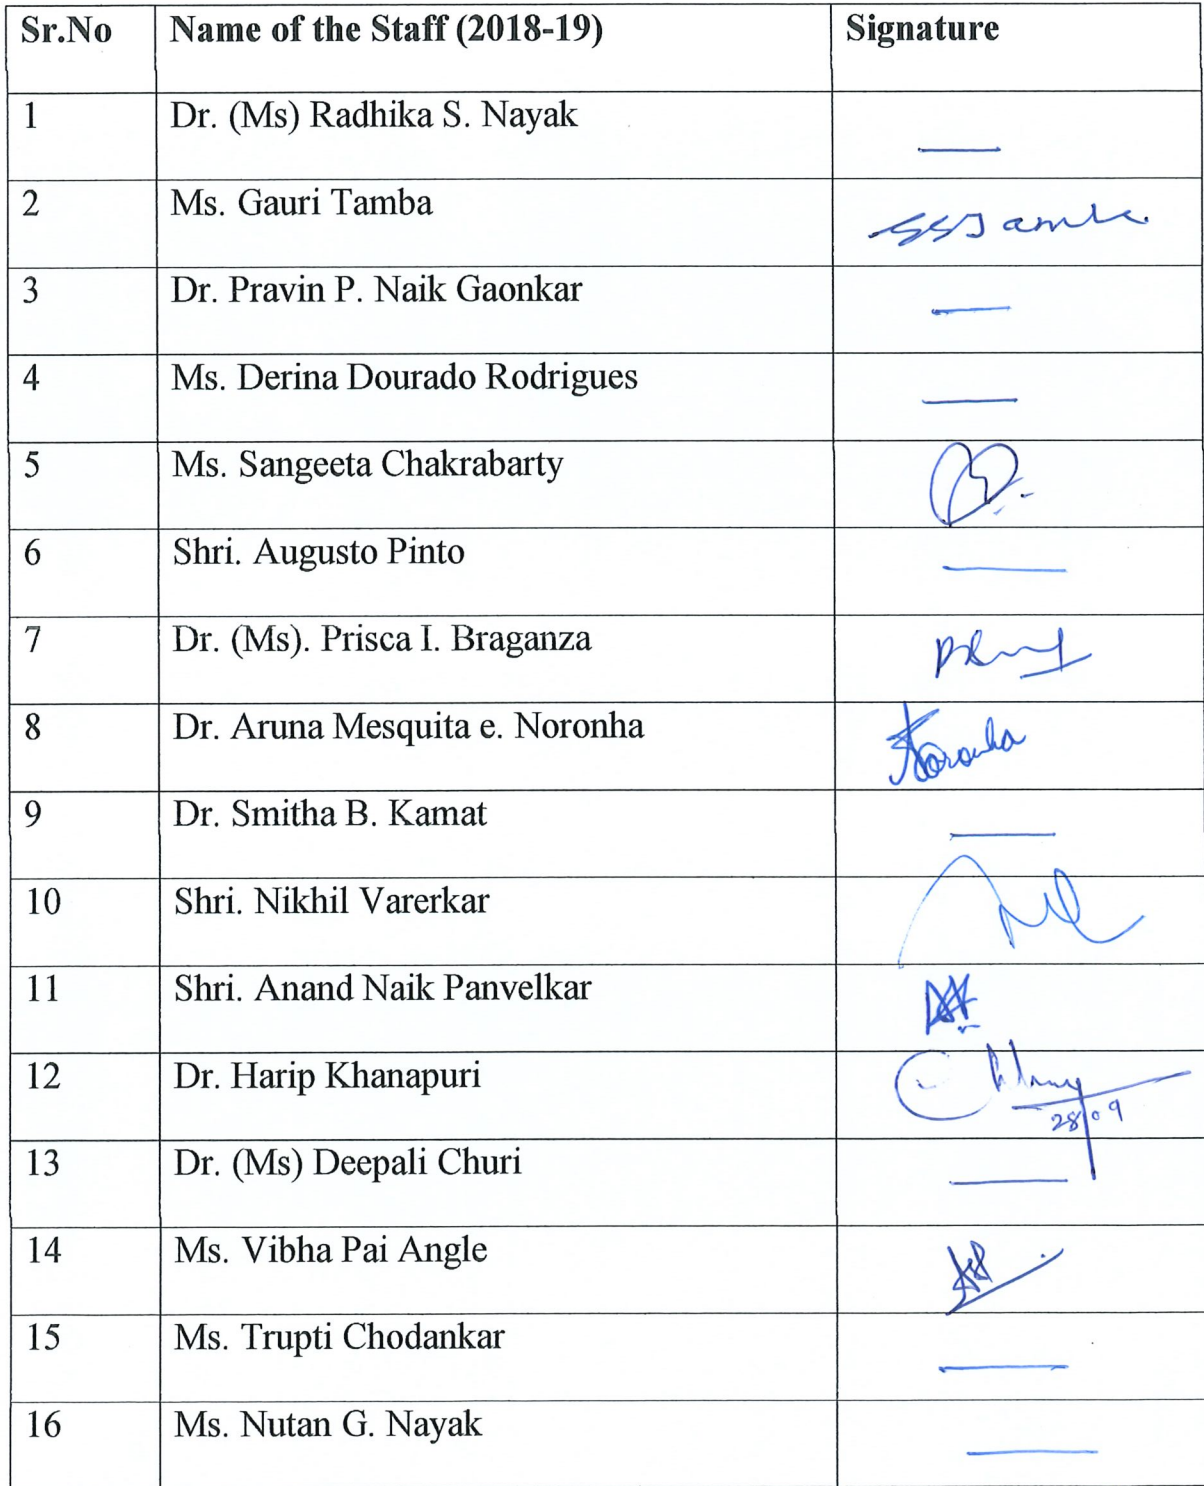 Sr.No Name of the Staff (2018-19) Signature
1 Dr. (Ms) Radhika S. Nayak
2 Ms. Gauri Tamba
3 Dr. Pravin P. Naik Gaonkar
4 Ms. Derina Dourado Rodrigues
5 Ms. Sangeeta Chakrabarty
6 Shri. Augusto Pinto
7 Dr. (Ms). Prisca I. Braganza
8 Dr. Aruna Mesquita e. Noronha Noronha
9 Dr. Smitha B. Kamat
10 Shri. Nikhil Varerkar
11 Shri. Anand Naik Panvelkar
12 Dr. Harip Khanapuri
28/09
13 Dr. (Ms) Deepali Churi
14 Ms. Vibha Pai Angle
15 Ms. Trupti Chodankar
16 Ms. Nutan G. Nayak